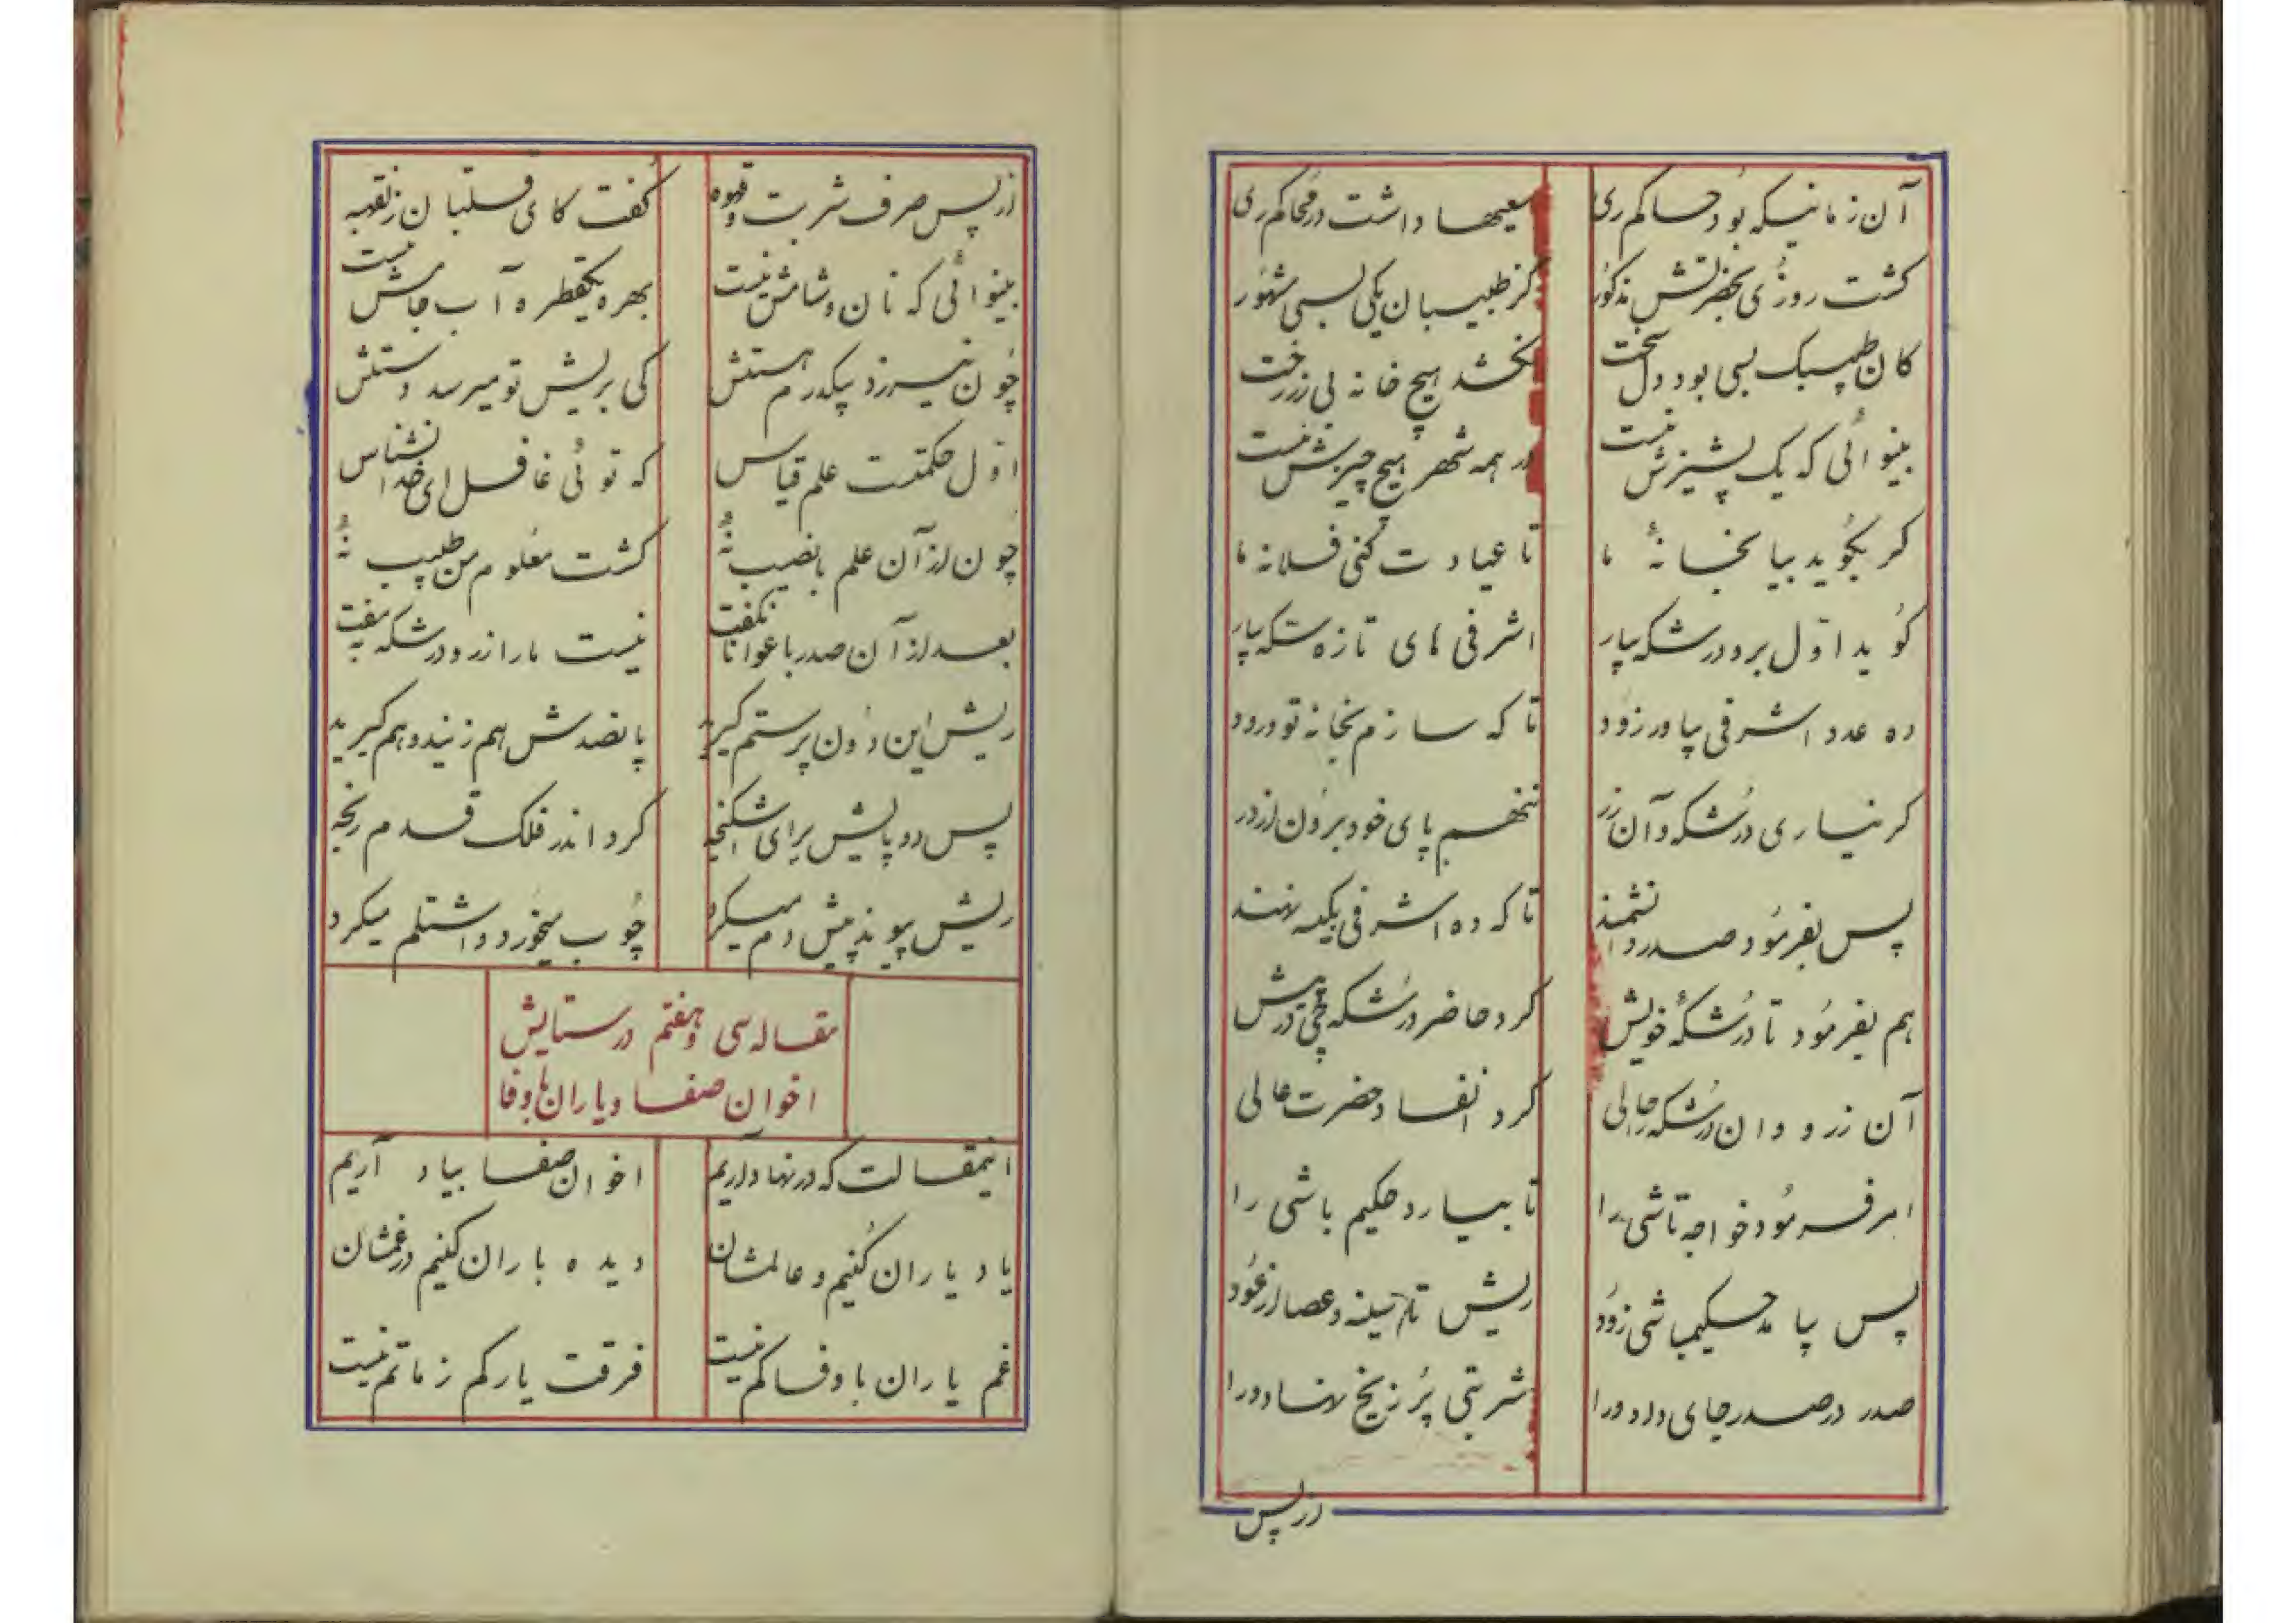 آن زمانیکه بود حاکم ری سعیها داشت در محاکم ری
گشت روزی بحضرتش مذکور کز طبیبان یکی بسی مشهور
کان طبیبک بسی بود دل سخت نکشد هیچ خانه بی زر رخت
بینوائی که یک پشیزش نیست در همه شهر هیچ چیزش نیست
گر بگوید بیا بخانهٔ ما تا عیادت کنی فلانه ما
گوید اول برو درشکه بیار اشرفی های تازه سکه بیار
ده عدد اشرفی بیاور زود تا که سازم بخانه تو ورود
گر نیاری درشکه و آن زر ننهم پای خود برون از در
پس بفرمود صدر دانشمند تا که ده اشرفی بکیسه نهند
هم بفرمود تا درشکهٔ خویش کرد حاضر درشکه چی در پیش
آن زر و وان درشکه حالی کرد انفاد حضرت عالی
امر فرمود خواجه تاشی را تا بیارد حکیم باشی را
پس بیامد حکیمباشی زود ریش تا سینه و عصا از عود
صدر در صدر جای داد ورا شربتی پر ز یخ نهاد ورا
از پس
از پس صرف شربت و قهوه گفت کای قلتبان
بینوائی که نان و شامش نیست بهره یکقطره آب جامش نیست
چون نیرزد بیکدرم هستش کی بریش تو میرسد دستش
اول حکمتت علم قیاس که توئی غافل ای خدا نشناس
چون از آن علم با نصیب نهٔ گشت معلوم من طبیب نهٔ
بعد از آن صدر با عوانان گفت نیست ما را زر و درشکه بمفت
ریش این دون پرستم گیرید پا نصدش هم زنید و هم گیرید
پس دو پایش برای اشکنجه کرد اندر فلک قدم رنجه
ریش پیوند پیش دم میکرد چوب میخورد و اشتلم میکرد
مقاله سی و هفتم در ستایش
اخوان صفا و یاران با وفا
اینمقالت که در نهاد آریم اخوان صفا بیاد آریم
یاد یاران کنیم و عالمشان دیده باران کنیم در غمشان
غم یاران با وفا کم نیست فرقت یار کم ز ماتم نیست